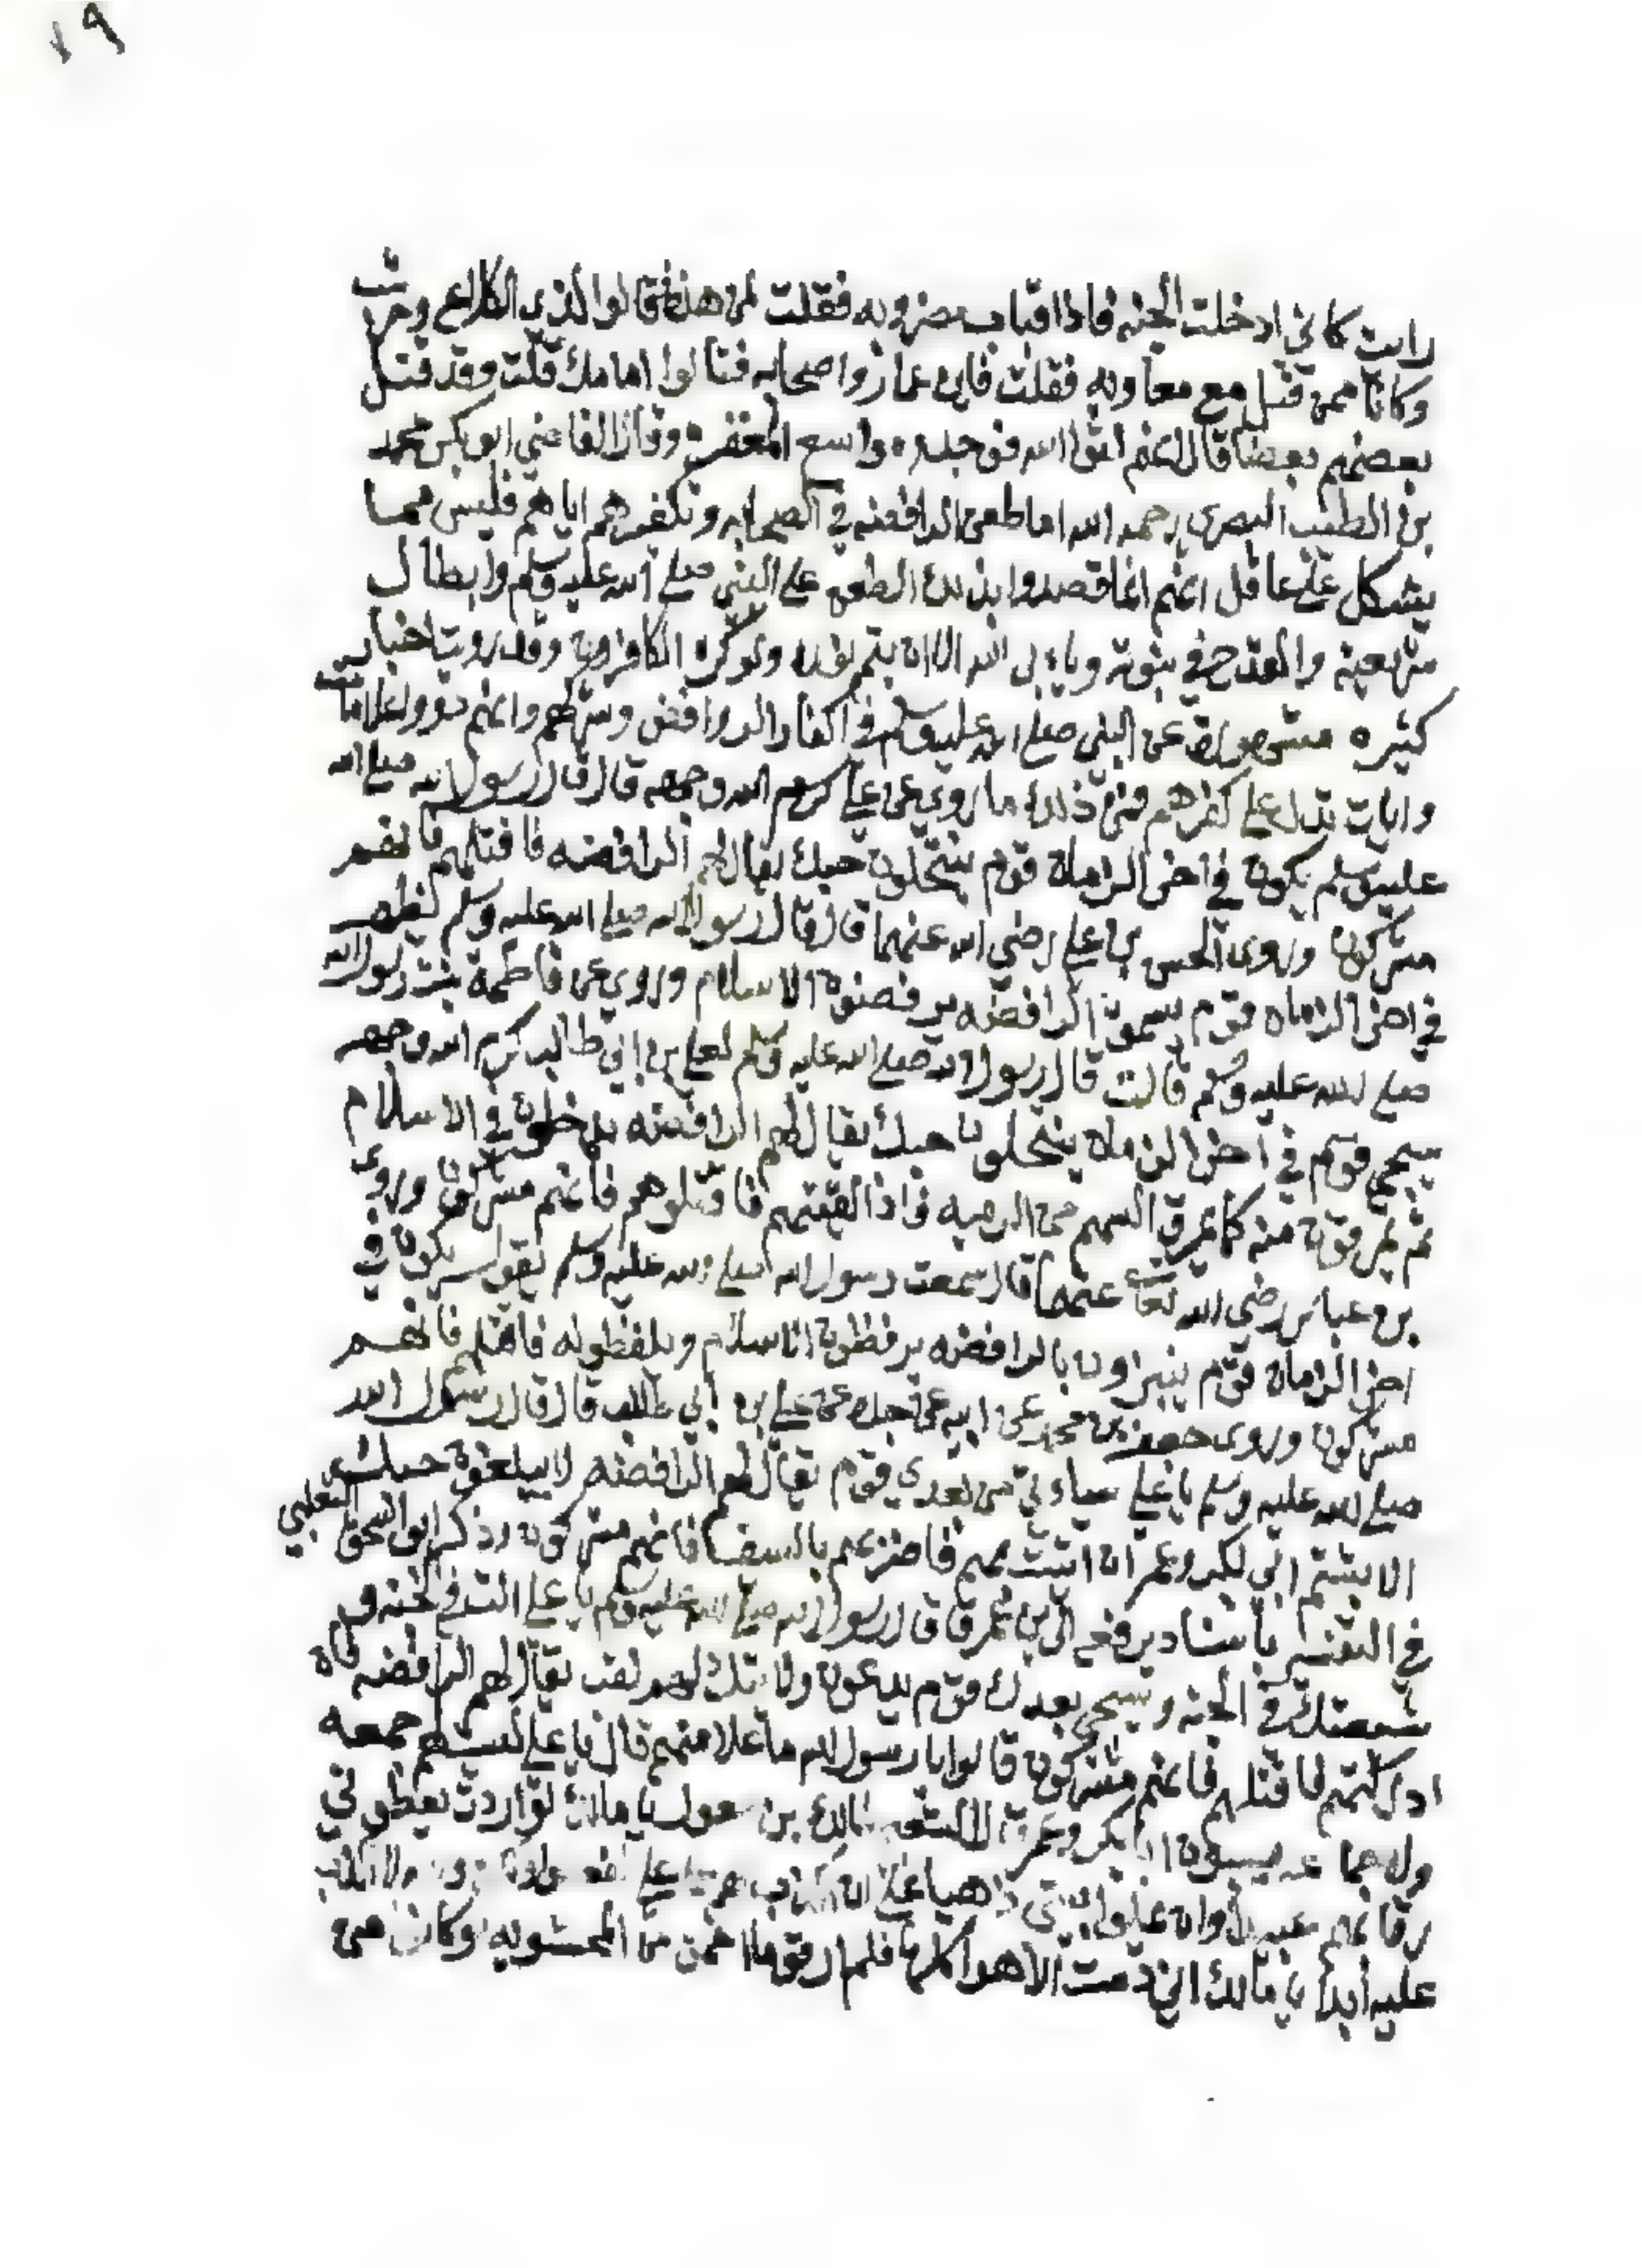 ١٩
رايت كاني ادخلت الجنه فاذا قباب مضروبه فقلت لمن هذا قالوا لذي الكلاع وحوشب
وكانا ممن قتل مع معاويه فقلت فاين عمار واصحابه فقالوا امامك قلت وقد قتل
بعضهم بعضا قال انهم لقوا الله فوجدوه واسع المغفره وقال القاضي ابو بكر محمد
بن الطيب البصري رحمه الله اما طعن الرافضه في الصحابه وتكفيرهم اياهم فليس مما
يشكل على عاقل انهم انما قصدوا بذلك الطعن على النبي صلى الله عليه وسلم وابطال
شريعته والقدح في نبوته ويابى الله الا ان يتم نوره ولو كره الكافرون وقد رويت اخبار
كثيره عن النبي صلى الله عليه وسلم في اكفار الروافض وشركهم وانهم ذوو علامات
وايات تدل على كفرهم فمن ذلك ما روي عن علي كرم الله وجهه قال قال رسول الله صلى الله
عليه وسلم يكون في اخر الزمان قوم ينتحلون حبك يقال لهم الرافضه فاقتلهم فانهم
مشركون وروى الحسن بن علي رضي الله عنهما قال قال رسول الله صلى الله عليه وسلم يظهر
في اخر الزمان قوم يسمون الرافضه يرفضون الاسلام وروي عن فاطمة بنت رسول الله
صلى الله عليه وسلم قالت قال رسول الله صلى الله عليه وسلم لعلي بن ابي طالب كرم الله وجهه
سيجي قوم في اخر الزمان ينتحلون حبك يقال لهم الرافضه يدخلون في الاسلام
ثم يمرقون منه كما يمرق السهم من الرميه فاذا لقيتهم فاقتلوهم فانهم مشركون وروى
بن عباس رضي الله تعالى عنهما قال سمعت رسول الله صلى الله عليه وسلم يقول سيكون في
اخر الزمان قوم ينبزاون بالرافضه يرفظون الاسلام ويلفظونه فاقتلهم فانهم
مشركون وروى جعفر بن محمد عن ابيه عن جده عن علي بن ابي طالب قال قال رسول الله
صلى الله عليه وسلم يا علي سياتي من بعدي قوم يقال لهم الرافضه لا يبلغون حبك
الا بشتم ابي بكر وعمر ان اتيت بهم فاضربهم بالسيف فانهم مشركون وذكر ابو اسحق الثعلبي
في التفسير باسناد يرفعه قال رسول الله صلى الله عليه وسلم يا علي انت في الجنه و
شيعتك في الجنه وسيجي بعدك قوم يدعون ولايتك لهم لقب يقال لهم الرافضه فان
ادركتهم فاقتلهم فانهم مشركون قالوا يا رسول الله ما علامتهم قال يا علي ليس لهم جمعه
ولا جماعه يسبون ابا بكر وعمر بن مغول يا مالك لو اردت يعطوني
رقابهم عبيدا وان يملوا بيتي ذهبا على ان اكذب على
عليه ابدا يا مالك اني درست الاهوا كلها فلم ار قوما احمق من الخشبيه وكان من